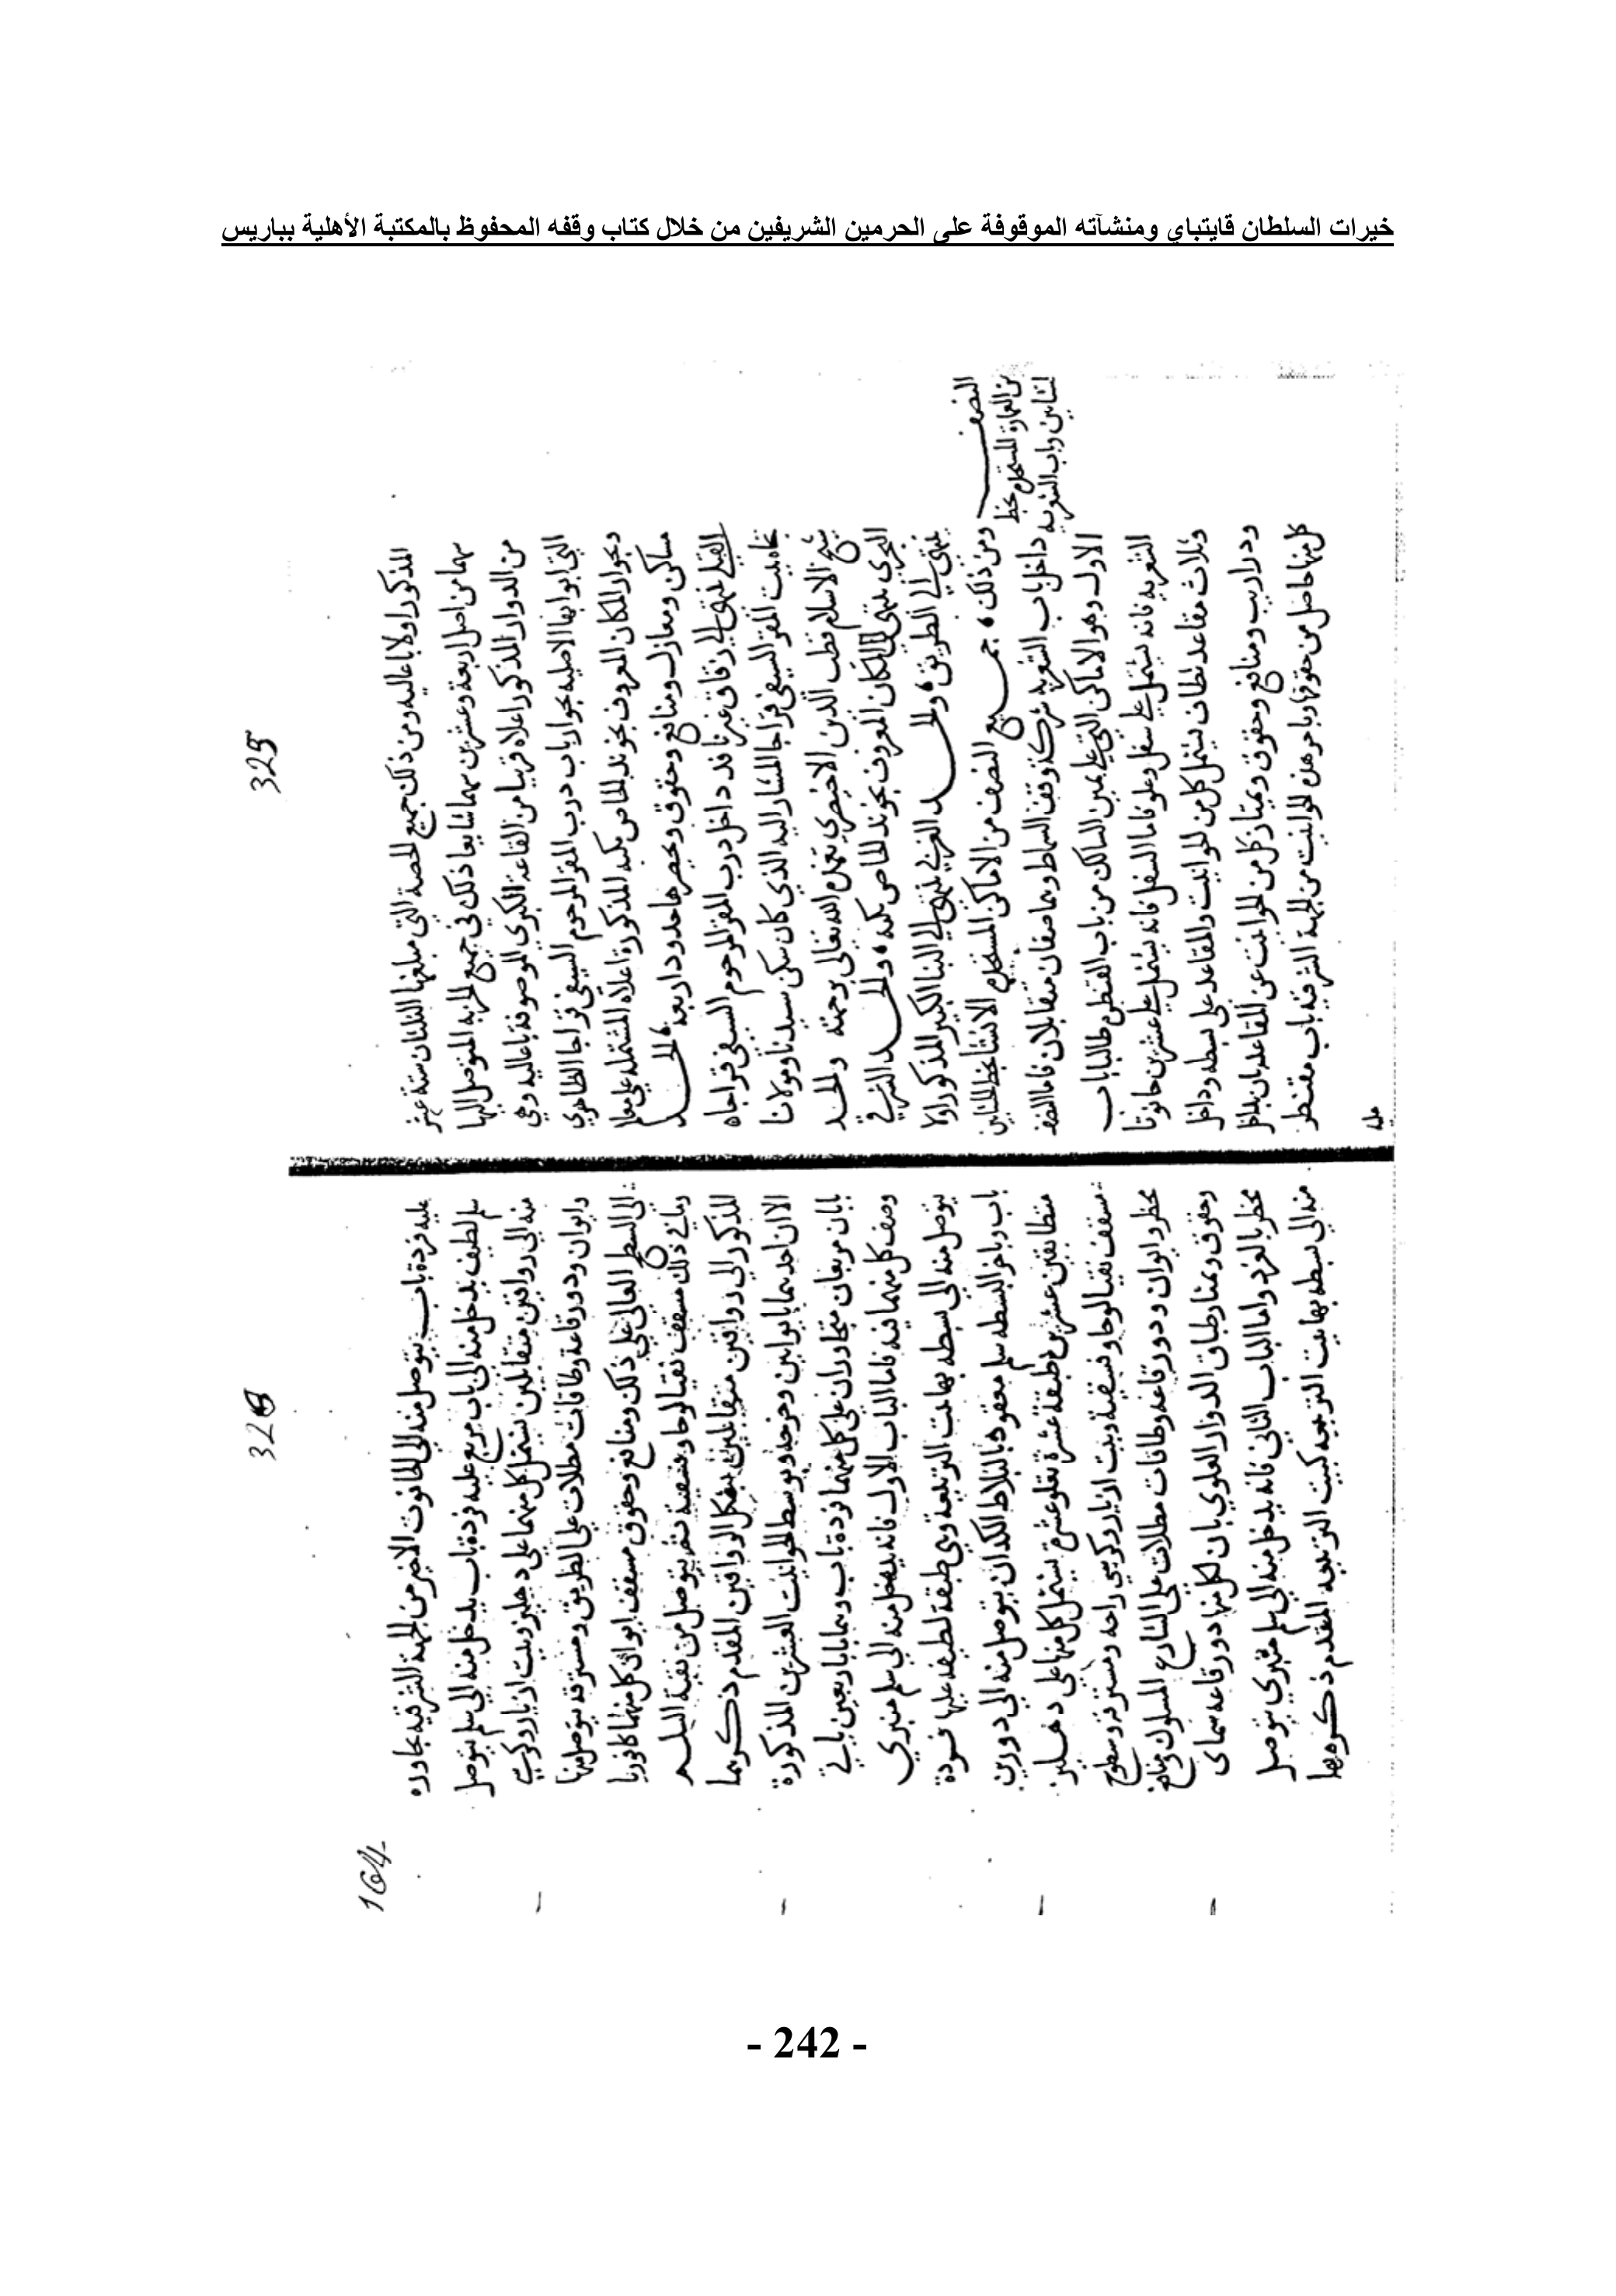 خيرات السلطان قايتباي ومنشآته الموقوفة على الحرمين الشريفين من خلال كتاب وقفه المحفوظ بالمكتبة الأهلية بباريس
325
المذكور اولا باعاليه ومن ذلك جميع الحصة التي مبلغها الثلثان ستة عشر
سهما من اصل اربعة وعشرين سهما شايعا ذلك في جميع المتوصل اليها
من الدوار المذكور اعلاه قريبا من القاعة الكبرى الموصوفة باعاليه وهي
التي ابوابها الاصلية بجوار باب درب المقر المرحوم السيفي قراجا الظاهري
وبجوار المكان المعروف بخوند الخاص بكيه المذكورة اعلاه المشتملة علي معالم
مساكن ومعازل ومنافع وحقوق ويحصرها حدود اربعة الحد
القبلي ينتهي الي زقاق غير نافذ داخل درب المقر المرحوم السيفي قراجا
تجاه بيت المقر السيفي قراجا المشار اليه الذي كان سكن سيدنا ومولانا
شيخ الاسلام قطب الدين الخيضري تغمده الله تعالى برحمته والحد
البحري ينتهي الي المكان المعروف بخوند الخاص بكيه والحد الشرقي
ينتهي الي الطريق والحد الغربي ينتهي الي البنا الكبير المذكور اولا
ومن ذلك جميع النصف من الاماكن المستجدة الانشا بخط
داخل باب الشعرية شركة وقف السماط وهما صفان متقابلان فاما الصف
الاول وهو الاماكن التي علي يمين السالك من باب القنطرة طالبا باب
الشعرية فانه يشتمل علي سفل وعلو فاما السفل فانه يشتمل علي عشرين حانوتا
وثلاث مقاعد يشتمل كل من الحوانيت والمقاعد علي بسطه وداخل
ودراريب ومنافع وحقوق ويمتاز كل من الحوانيت عن المقاعد بان بداخل
كل منها حاصل من حقوقها وباخر هذه الحوانيت من الجهة الشرقية باب مقنطر
النصف
من العمارة المستجدة بخط
وباب الشعرية
326
عليه فردة باب يتوصل منه الي الحانوت الاخير من الجهة الشرقية يجاوره
سلم لطيف يدخل منه الي باب مربع عليه فردة باب يدخل منه الي سلم يتوصل
منه الي رواقين متقابلين يشتمل كل منهما علي دهليز وبيت ازيار وكرسي
وايوان ودور قاعة وطاقات مطلات علي الطريق ومسترقه يتوصل منها
الي السطح العالي علي ذلك ومنافع وحقوق مسقف ايوان كل منهما
وباقي ذلك مسقف نقيا لوحا وفسقية ثم يتوصل من بقية السلم
المذكور الي رواقين متقابلين الرواقين المقدم ذكرهما
الا ان احدهما بايوانين وبوسط الحوانيت العشرين المذكورة
بابان مربعان متجاوران علي كل منهما فردة باب وهما باباربعين باتي
وصف كل منهما فيه فاما الباب الاول فانه يدخل منه الي سلم منبري
يتوصل منه الي بسطه بها بيت الترتيعة وهي طبقة لطيفة عليها فردة
باب وباخر البسطه سلم معقود بالبلاط الكدان يتوصل منه الي دورين
متطابقين عشرين طبقة عشرة تعلو عشرة يشتمل كل منها علي دهليز
مسقف نقيا لوحا وفسقية وبيت ازيار وكرسي راحه ومسترقه وسطوح
محظر وايوان ودور قاعه وطاقات مطلات علي الشارع المسلوك ومنافع
وحقوق ويمتاز طباق الدوار العلوي بان لكل منها دور قاعه سماى
محظر بالغرد واما الباب الثاني فانه يدخل منه الي سلم منبري يتوصل
منه الي بسطه بها بيت الترتيعه كبيت الترتيعه المقدم ذكره
164
- 242 -